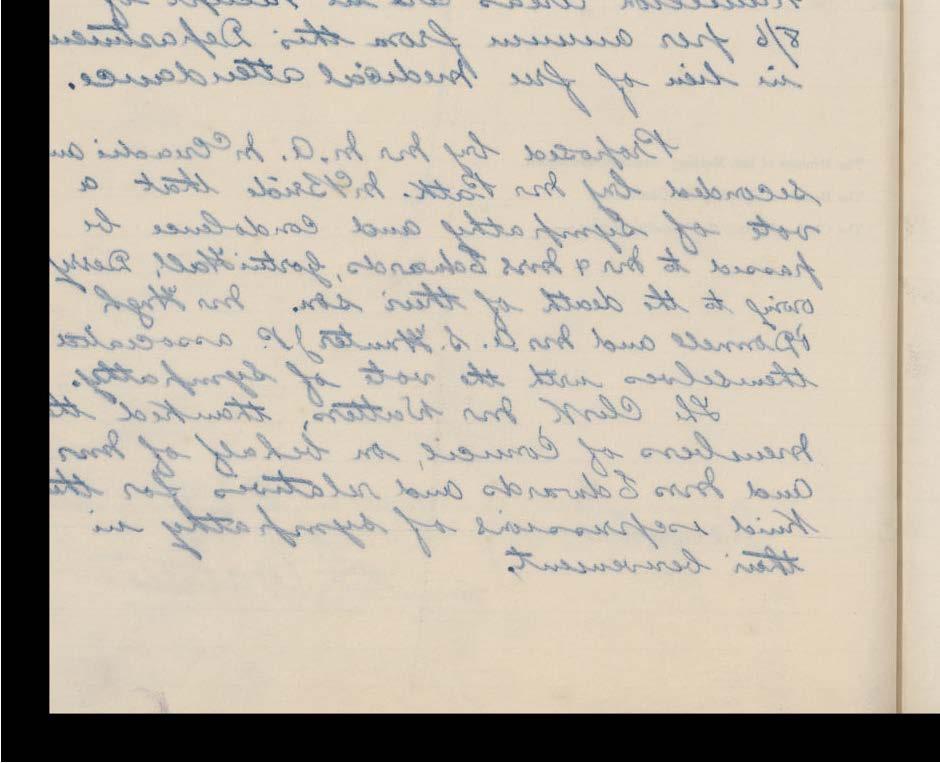 8/6 per annum from this Departmen
in lieu of free medical attendance.
Proposed by Mr M. A. McCruadhin an
seconded by Mr Patk. McBride that a
vote of sympathy and condolence be
passed to Mr & Mrs Edwards, Gortin Hall, Derry
owing to the death of their son. Mr Hugh
O'Donnell and Mr A. S. Hunter J.P. associated
themselves with the vote of sympathy.
The Clerk, Mr Watters, thanked the
members of Council, on behalf of Mr
and Mrs Edwards and relatives for the
kind expressions of sympathy in
their bereavement.